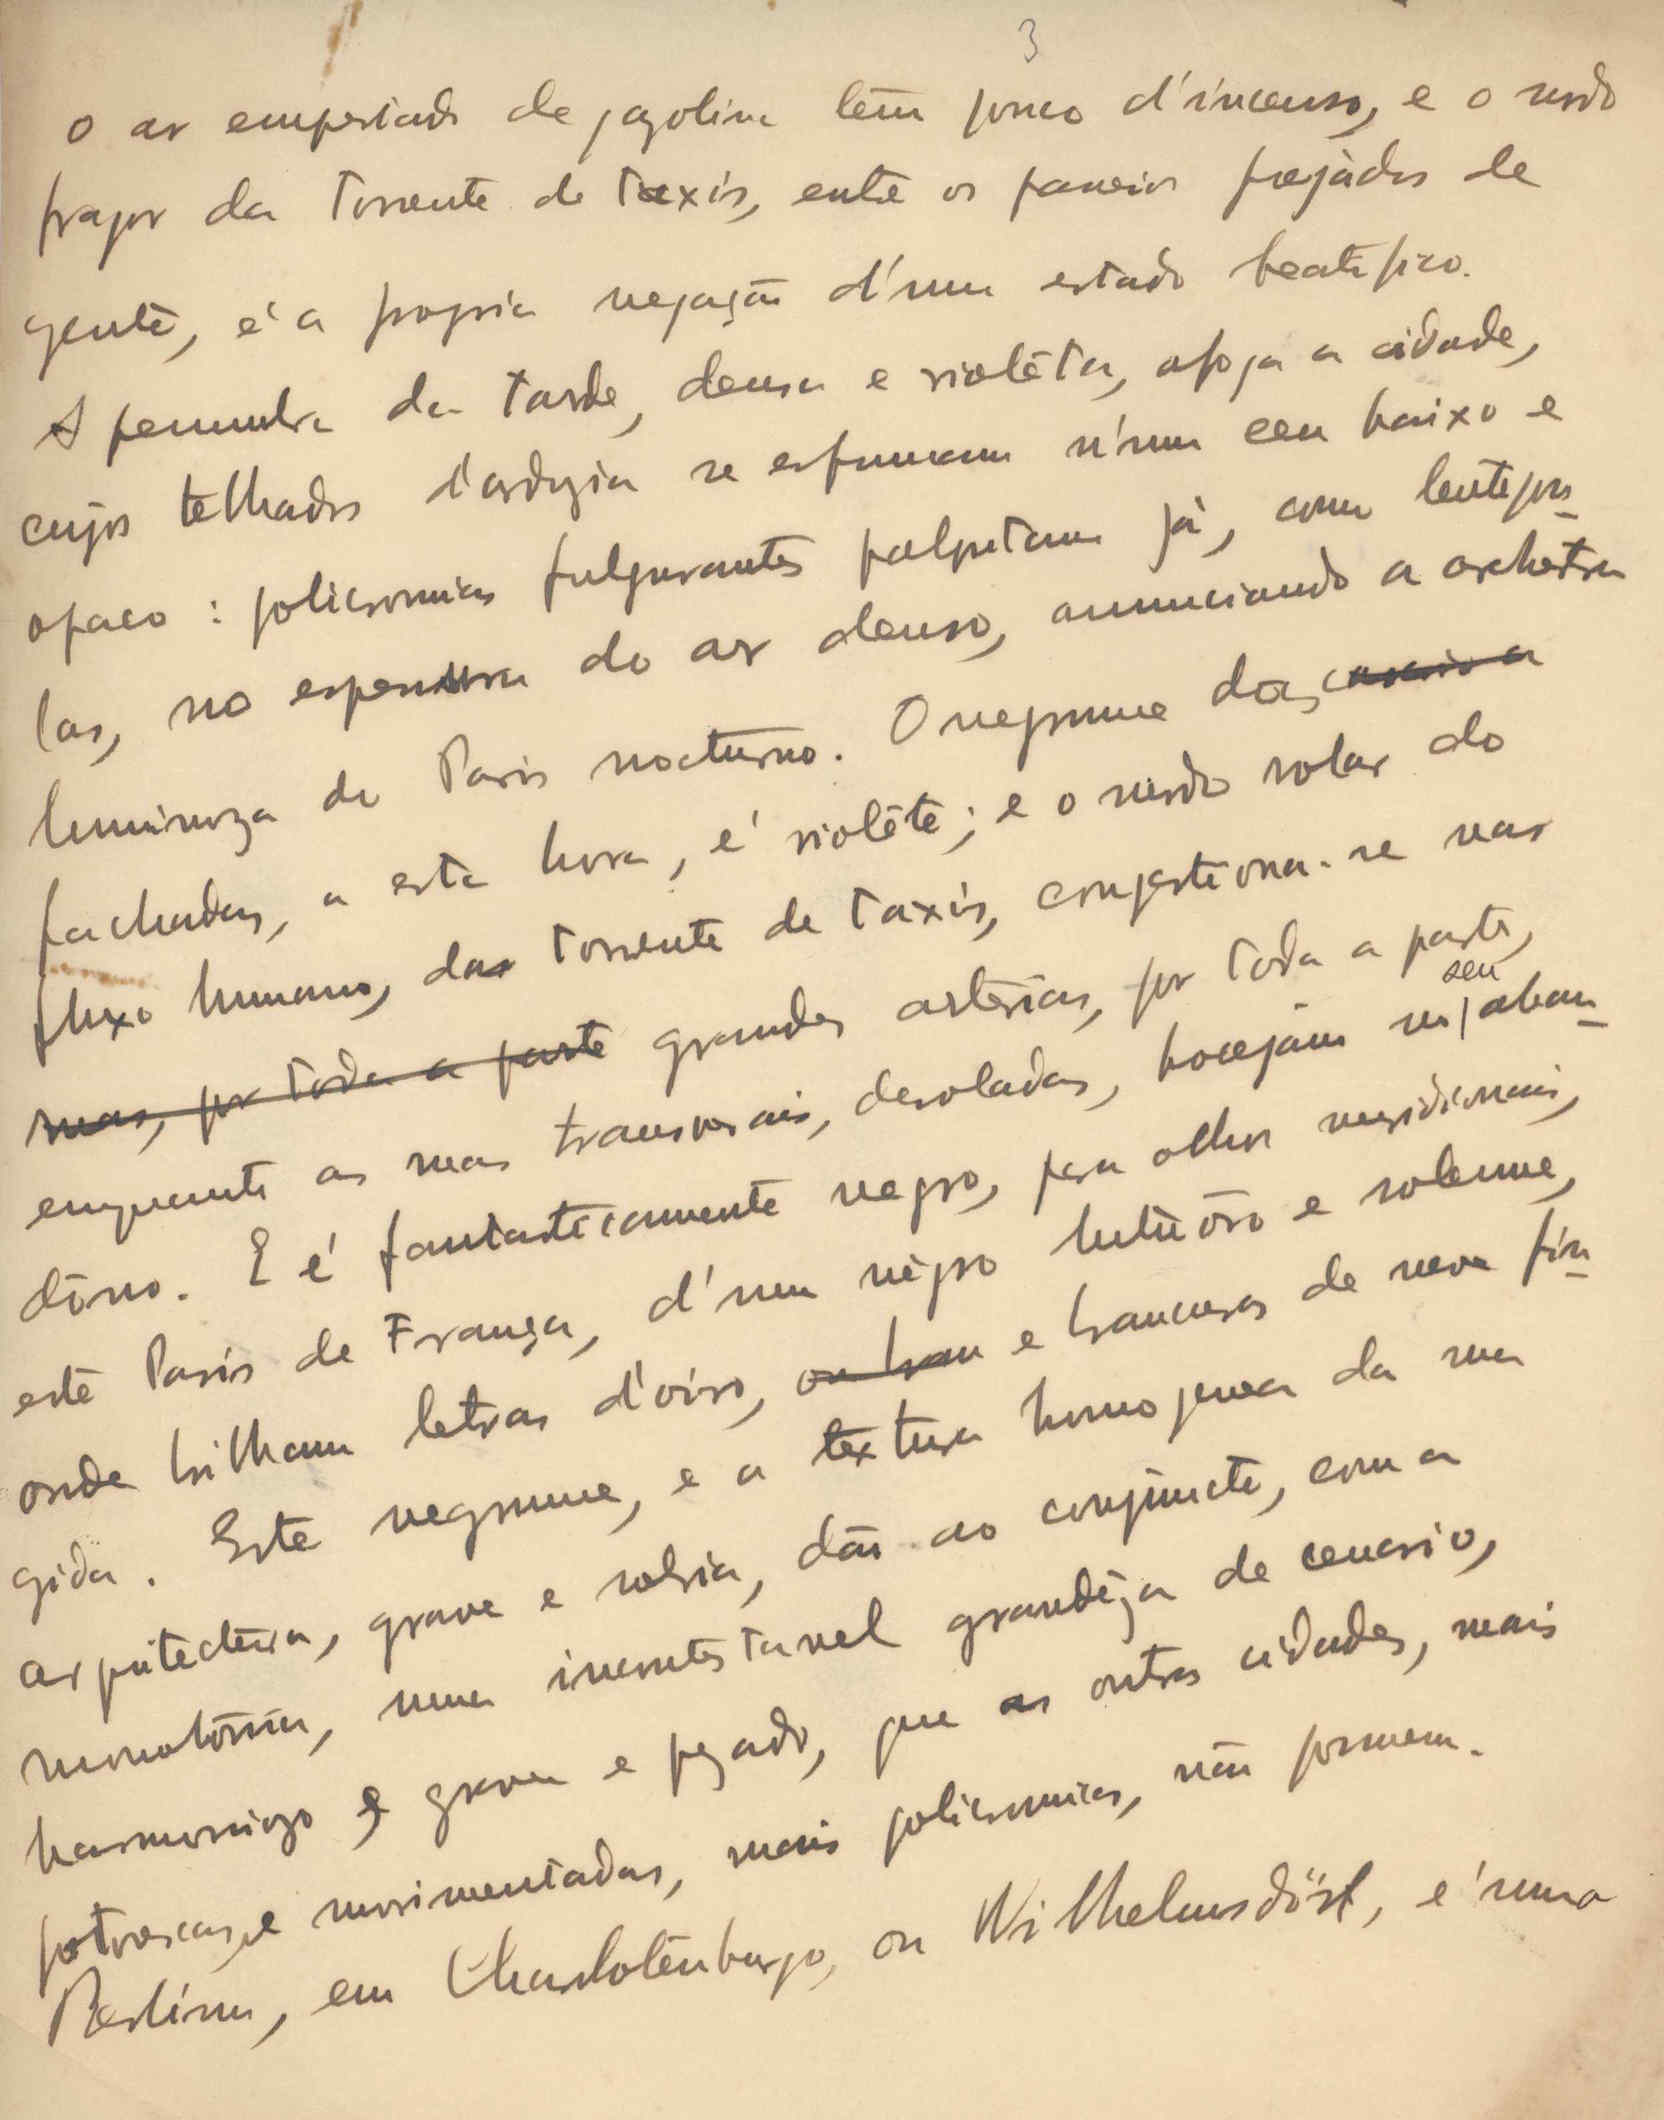 3
o ar empestado de gazolina têm pouco d'incenso, e o surdo
fragor da torrente de taxis, entre os passeios pejádos de
gente, é a propria negação d'um estado beatifico.
A penumbra da tarde, densa e violêta, afoga a cidade,
cujos telhados d'ardozia se esfumam n'um ceu baixo e
opaco: policromias fulgurantes palpitam já, com lentejou-
las, no espessura do ar denso, anunciando a orchêstra
luminoza do Paris nocturno. O negrume das
fachadas, a esta hora, é violête; e o surdo rolar do
fluxo humano, da torrente de taxis, congestiona-se nas
ruas, por toda a parte grandes artérias, por toda a parte,
emquanto as ruas transversais, desoladas, bocejam no seu aban-
dôno. E é fantasticamente negro, para olhos meridionais,
este Paris de França, d'um nêgro lutuôso e solemne,
onde brilham letras d'oiro, ou bran e brancuras de neve fin-
gida. Este negrume, e a têxtura homogenea da sua
arquitectura, grave e sobria, dão ao conjuncto, com a
monotônia, uma incontestavel grandêza de cenario,
harmoniozo e grave e pezado, que as outras cidades, mais
pitorescas, e movimentadas, mais policromicas, não possuem.
Berlim, em Charlotenburgo, ou Wilhelmsdörf, é uma